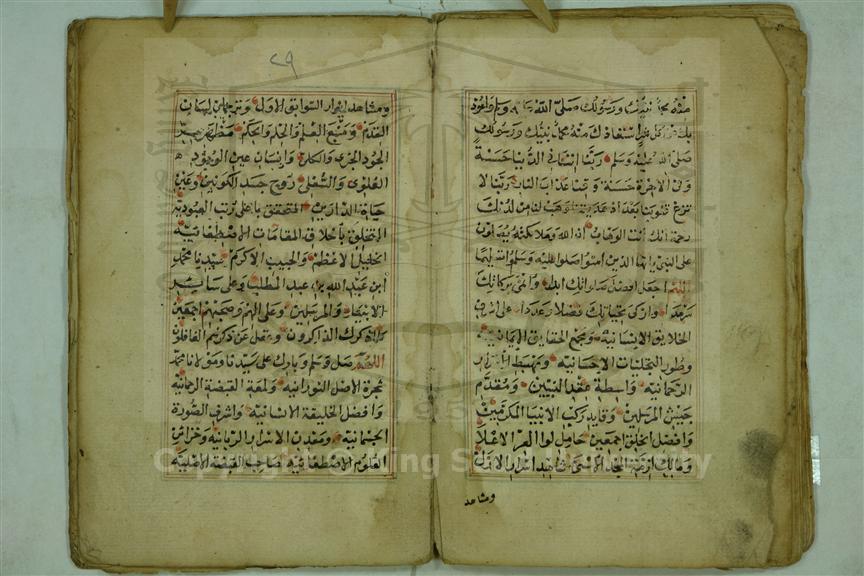 منه محمد نبيك ورسولك صلى الله عليه وسلم واعوذ
بك من كل شر استعاذك منه محمد نبيك ورسولك
صلى الله عليه وسلم ربنا اتنا في الدنيا حسنة
وفى الاخرة حسنة وقنا عذاب النار ربنا لا
تزغ قلوبنا بعد اذ هديتنا وهب لنا من لدنك
رحمة انك انت الوهاب ان الله وملائكته يصلون
على النبي يا ايها الذين امنوا صلوا عليه وسلموا تسليما
اللهم اجعل افضل صلواتك ابدا وانمى بركاتك
سرمدا وازكى تحياتك فضلا وعددا على اشرف
الخلايق الانسانية ومجمع الحقايق الايمانية
وطور التجليات الاحسانية ومهبط الاسرار
الرحمانية واسطة عقد النبيين ومقدم
جيش المرسلين وقايد ركب الانبيا المكرمين
وافضل الخلق اجمعين حامل لوا العز الاعلا
ومالك ازمة المجد الاسنى شاهد اسرار الازل
ومشاهد
٢٩
ومشاهد انوار السوابق الاول وترجمان لسان
القدم ومنبع العلم والحلم والحكم مظهر سر
الجود الجزى والكلى وانسان عين الوجود
العلوى والسفلى روح جسد الكونين وعين
حياة الدارين المتحقق باعلى رتب العبودية
المتخلق باخلاق المقامات الاصطفائية
الخليل الاعظم والحبيب الاكرم سيدنا محمد
ابن عبد الله بن عبد المطلب وعلى ساير
الانبياء والمرسلين وعلى الهم وصحبهم اجمعين
كلما ذكرك الذاكرون وغفل عن ذكرهم الغافلون
اللهم صل وسلم وبارك على سيدنا ومولانا محمد
شجرة الاصل النورانية ولمعة القبضة الرحمانية
وافضل الخليقة الانسانية واشرف الصورة
الجسمانية ومعدن الاسرار الربانية وخزائن
العلوم الاصطفائية صاحب القبضة الاصلية